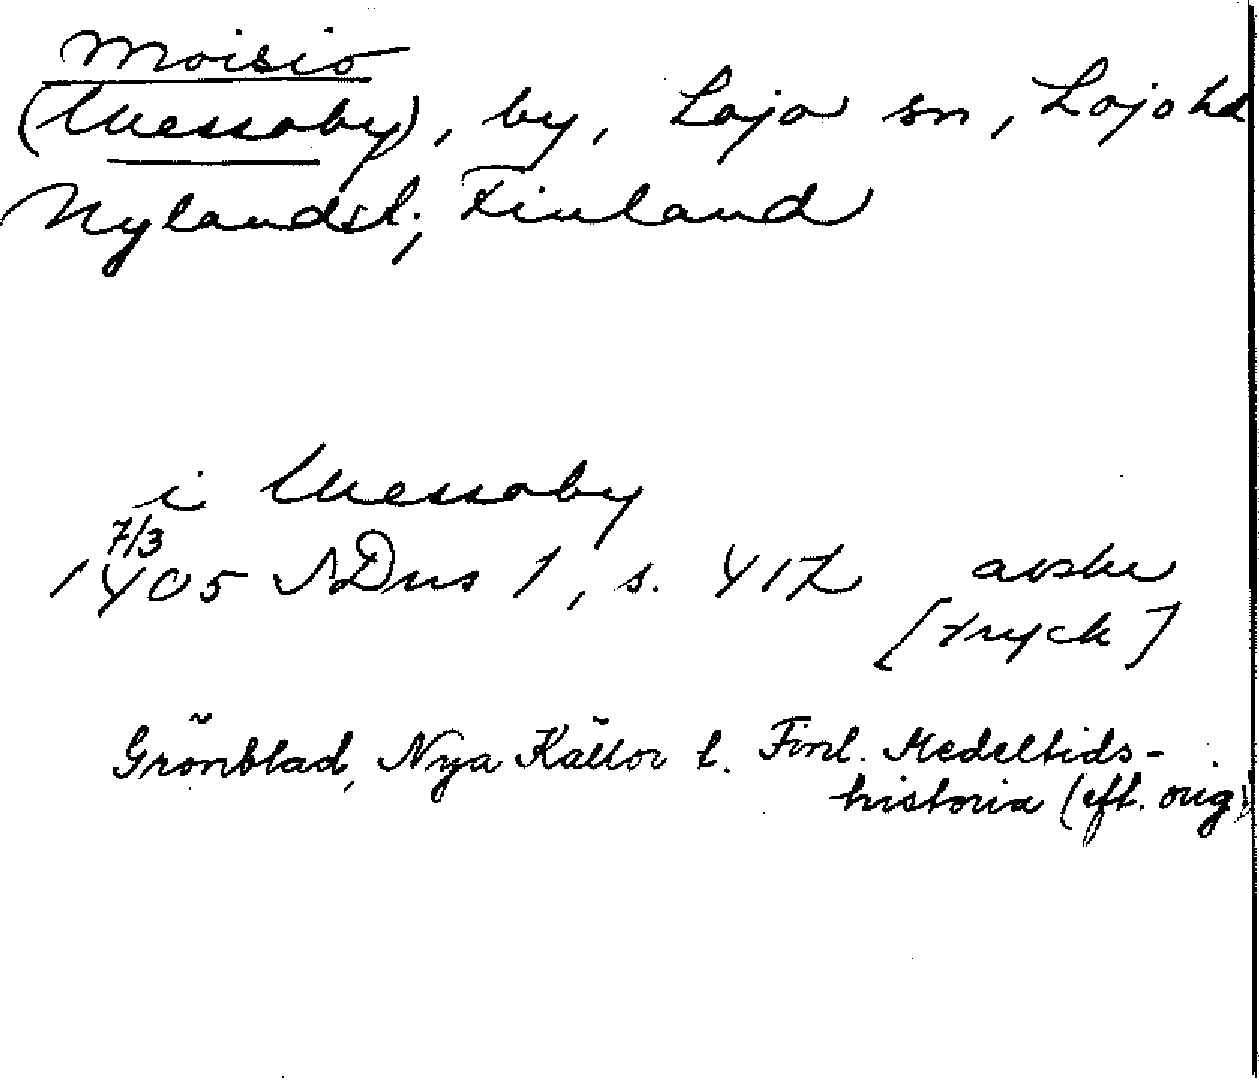 Moisio
(Messoby), by, Lojo sn, Lojo hd
Nylandsl., Finland
i Messoby
7/3
1405 SDns 1, s. 417 avskr
[tryck]
Grönblad, Nya Källor t. Finl. Medeltids-
historia (eft. orig.)